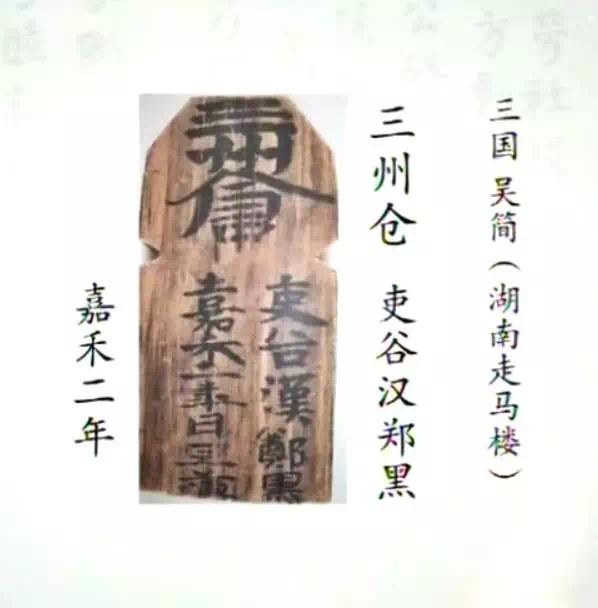 三国吴简（湖南走马楼）
三州仓 吏谷汉郑黑
三州倉
吏谷漢鄭黑
嘉禾二年
嘉禾二年